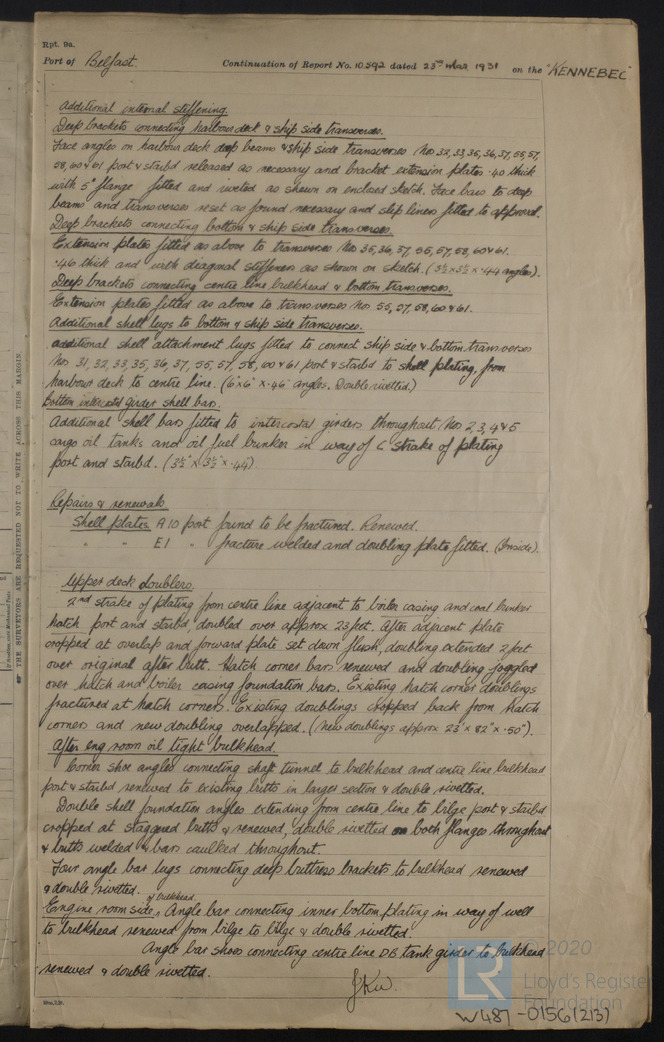 Rpt. 9a.
Port of Belfast. Continuation of Report No. 10592 dated 25th Mar. 1931 on the "KENNEBEC"
Additional internal stiffening.
Deep brackets connecting harbour deck & ship side transverses.
Face angles on harbour deck deep beams & ship side transverses Nos 32, 33, 35, 36, 37, 55, 57,
58, 60 & 61 port & starbd released as necessary and bracket extension plates .40 thick
with 5" flange fitted and riveted as shown on enclosed sketch. Face bars to deep
beams and transverses reset as found necessary and slip liners fitted to approval.
Deep brackets connecting bottom & ship side transverses.
Extension plates fitted as above to transverses Nos 35, 36, 37, 55, 57, 58, 60 & 61.
.46 thick and with diagonal stiffeners as shown on sketch. (3½ x 3½ x .44 angles).
Deep brackets connecting centre line bulkhead & bottom transverses.
Extension plates fitted as above to transverses Nos 55, 57, 58, 60 & 61.
Additional shell lugs to bottom & ship side transverses.
additional shell attachment lugs fitted to connect ship side & bottom transverses
Nos 31, 32, 33, 35, 36, 37, 55, 57, 58, 60 & 61 port & starbd to shell plating, from
harbour deck to centre line. (6" x 6" x .46 angles. Double rivetted.)
Bottom intercostal girder shell bars.
Additional shell bars fitted to intercostal girders throughout Nos 2, 3, 4 & 5
cargo oil tanks and oil fuel bunker in way of C strake of plating
port and starbd. (3½" x 3½" x .44)
Repairs & renewals
Shell plates A 10 port found to be fractured. Renewed.
" " E1 " fracture welded and doubling plate fitted. (Inside).
Upper deck doublers.
2nd strake of plating from centre line adjacent to boiler casing and coal bunker
hatch port and starbd, doubled over approx 23 feet. After adjacent plate
cropped at overlap and forward plate set down flush, doubling extended 2 feet
over original after butt. Hatch corner bars renewed and doubling joggled
over hatch and boiler casing foundation bars. Existing hatch corner doublings
fractured at hatch corners. Existing doublings cropped back from hatch
corners and new doubling overlapped. (New doublings approx 23' x 82" x .50").
After eng room oil tight bulkhead.
Corner shoe angles connecting shaft tunnel to bulkhead and centre line bulkhead
port & starbd renewed to existing butts in larger section & double rivetted.
Double shell foundation angles extending from centre line to bilge port & starbd
cropped at staggered butts & renewed, double rivetted on both flanges throughout
& butts welded & bars caulked throughout.
Four angle bar lugs connecting deep buttress brackets to bulkhead renewed
& double rivetted.
Engine room side of bulkhead, Angle bar connecting inner bottom plating in way of well
to bulkhead renewed from bilge to bilge & double rivetted.
Angle bar shoes connecting centre line DB tank girder to bulkhead
renewed & double rivetted.
THE SURVEYORS ARE REQUESTED NOT TO WRITE ACROSS THIS MARGIN.
© 2020
LR
Lloyd's Register
Foundation
W487-0156(2/3)